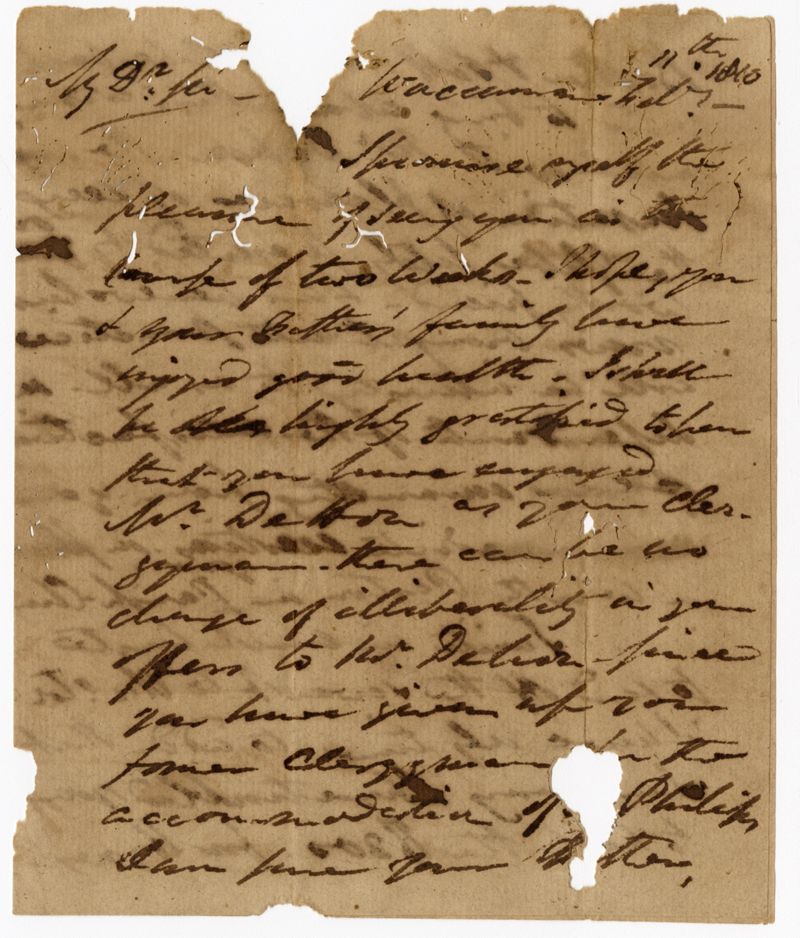 11th
My Dr. Sir - Waccamaw Feby. 1810
I promise myself the
pleasure of seeing you in the
course of two Weeks - I hope, you
& your Father's family have
enjoyed good health - I shall
be highly gratified to hear
that you have engaged
Mr. Dehon as your Cler-
gyman - there can be no
charge of illiberality in your
offers to Mr. Dehon - since
you have given up your
former Clergyman for the
accommodation of Philips
I am sure your